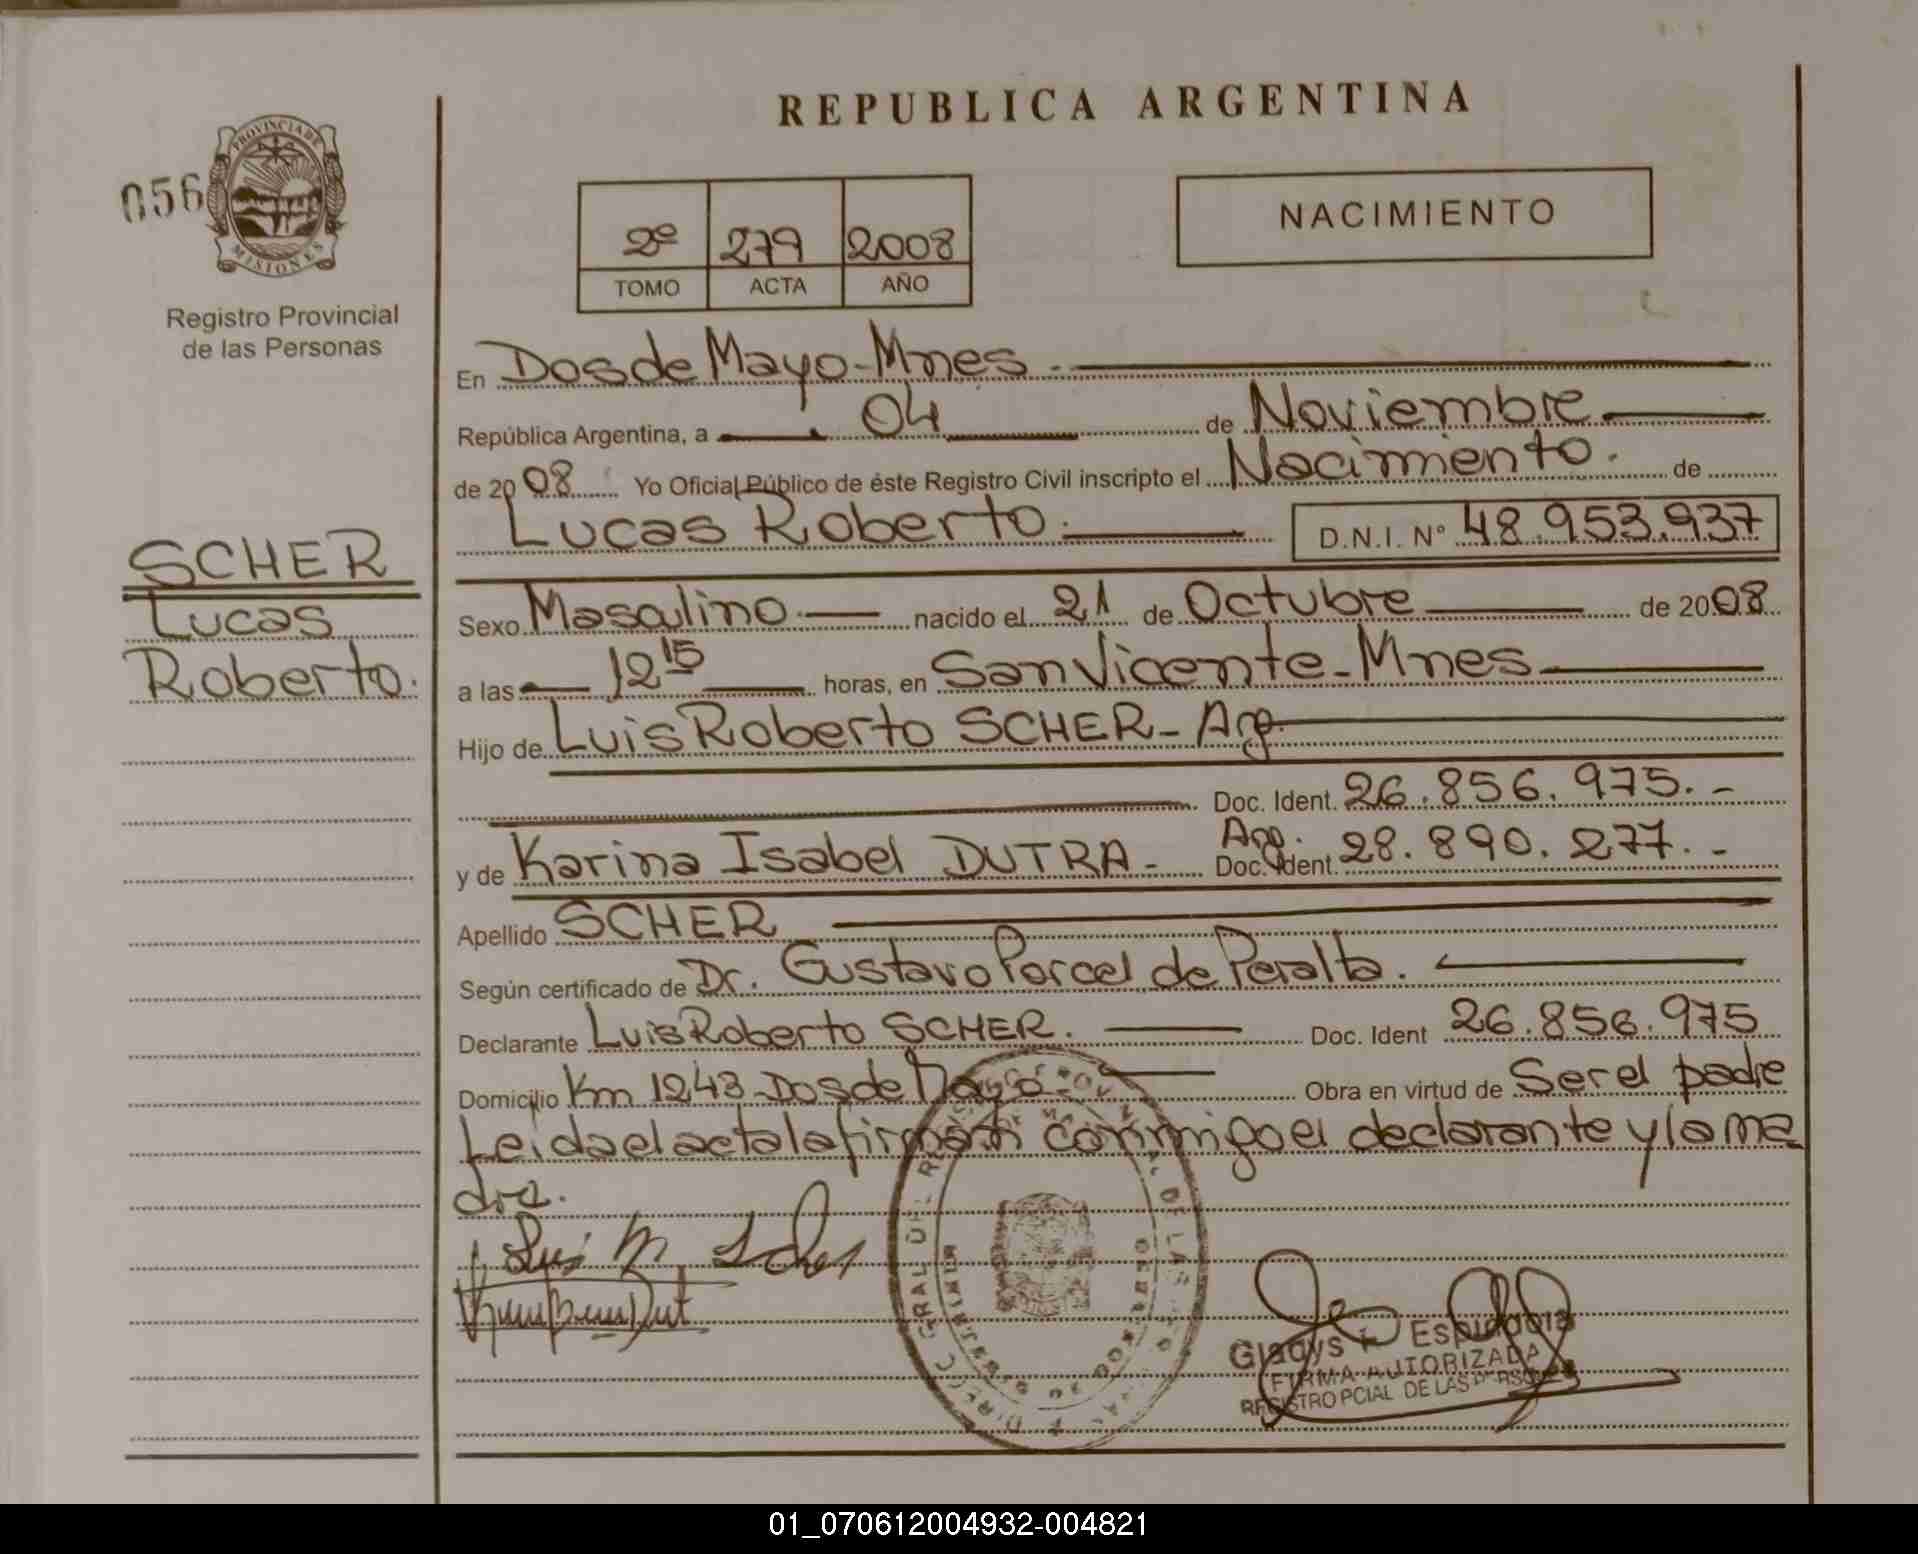 REPUBLICA ARGENTINA
056
PROVINCIA DE
MISIONES
Registro Provincial
de las Personas
2º 279 2008
TOMO ACTA AÑO
NACIMIENTO
SCHER
Lucas
Roberto.
En Dos de Mayo-Mnes.
República Argentina, a 04 de Noviembre
de 2008 Yo Oficial Público de éste Registro Civil inscripto el Nacimiento. de
Lucas Roberto. D.N.I. Nº 48.953.937
Sexo Masculino. nacido el 21 de Octubre de 2008
a las 12 15 horas, en San Vicente-Mnes
Hijo de Luis Roberto SCHER- Arg.
Doc. Ident. 26.856.975.-
y de Karina Isabel DUTRA- Arg. Doc. Ident. 28.890.277.-
Apellido SCHER
Según certificado de Dr. Gustavo Porcel de Peralta.
Declarante Luis Roberto SCHER. Doc. Ident 26.856.975
Domicilio Km 1243-Dos de Mayo- Obra en virtud de Ser el padre
Leida el acta la firman conmigo el declarante y la ma
dre.
Gladys F. Espindola
FIRMA AUTORIZADA
REGISTRO PCIAL DE LAS PERSONAS
01_070612004932-004821